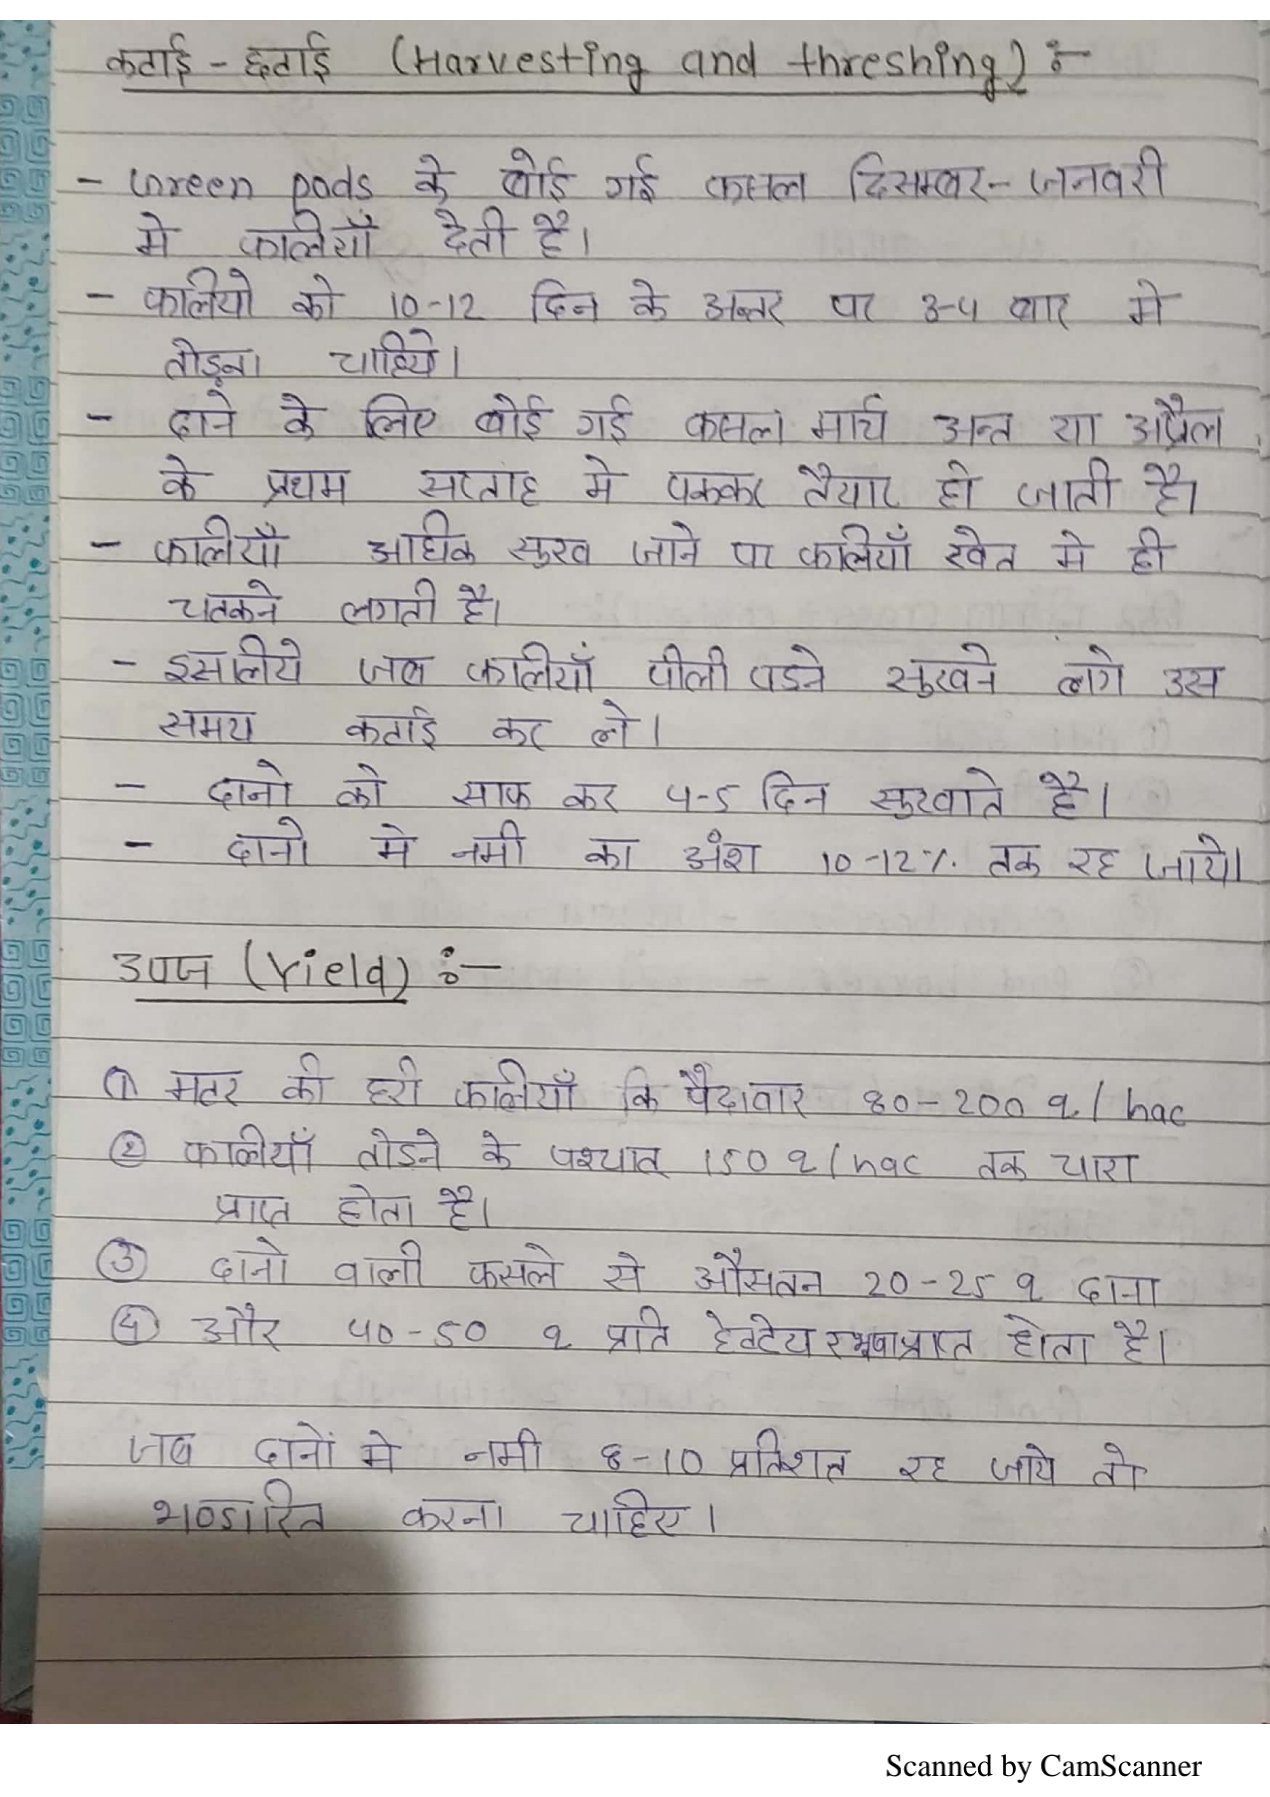 कटाई - छटाई (Harvesting and threshing) :-
- Green pods के बोई गई फसल दिसम्बर - जनवरी
मे फालियाँ देती है।
- फालियो को 10-12 दिन के अन्तर पर 3-4 बार मे
तोड़ना चाहिये।
- दाने के लिए बोई गई फसल मार्च अन्त या अप्रैल
के प्रथम सप्ताह मे पककर तैयार हो जाती है।
- फालियाँ अधिक सुख जाने पर फालियाँ खेत मे ही
चतकने लगती है।
- इसलिये जब फालियाँ पीली पडने सुखने लगे उस
समय कटाई कर ले।
- दानो को साफ कर 4-5 दिन सुखाते है।
- दानो मे नमी का अंश 10-12% तक रह जाये।
उपज (Yield) :-
① मटर की हरी फालियाँ कि पैदावार 80-200 q/hac
② फालीयाँ तोडने के पश्चात् 150 q/hac तक चारा
प्राप्त होता है।
③ दानो वाली फसले से औसतन 20-25 q दाना
④ और 40-50 q प्रति प्राप्त होता है।
जब दानों मे नमी 8-10 प्रतिशत रह जाये तो
भण्डारित करना चाहिए।
Scanned by CamScanner